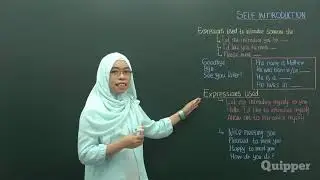 SELF INTRODUCTION
Expression used to introduce someone else
Let me introduce you to
I'd like you to meet
Please meet
Goodbye
Bye
See you later!
His name is Mathew
He is a
He lives in
Expressions used
Let me introduce myself to you
Hello I'd like to introduce myself
Allow me to introduce myself
Nice meeting you
Pleased to meet you
Happy to meet you
How do you do?
Quipper